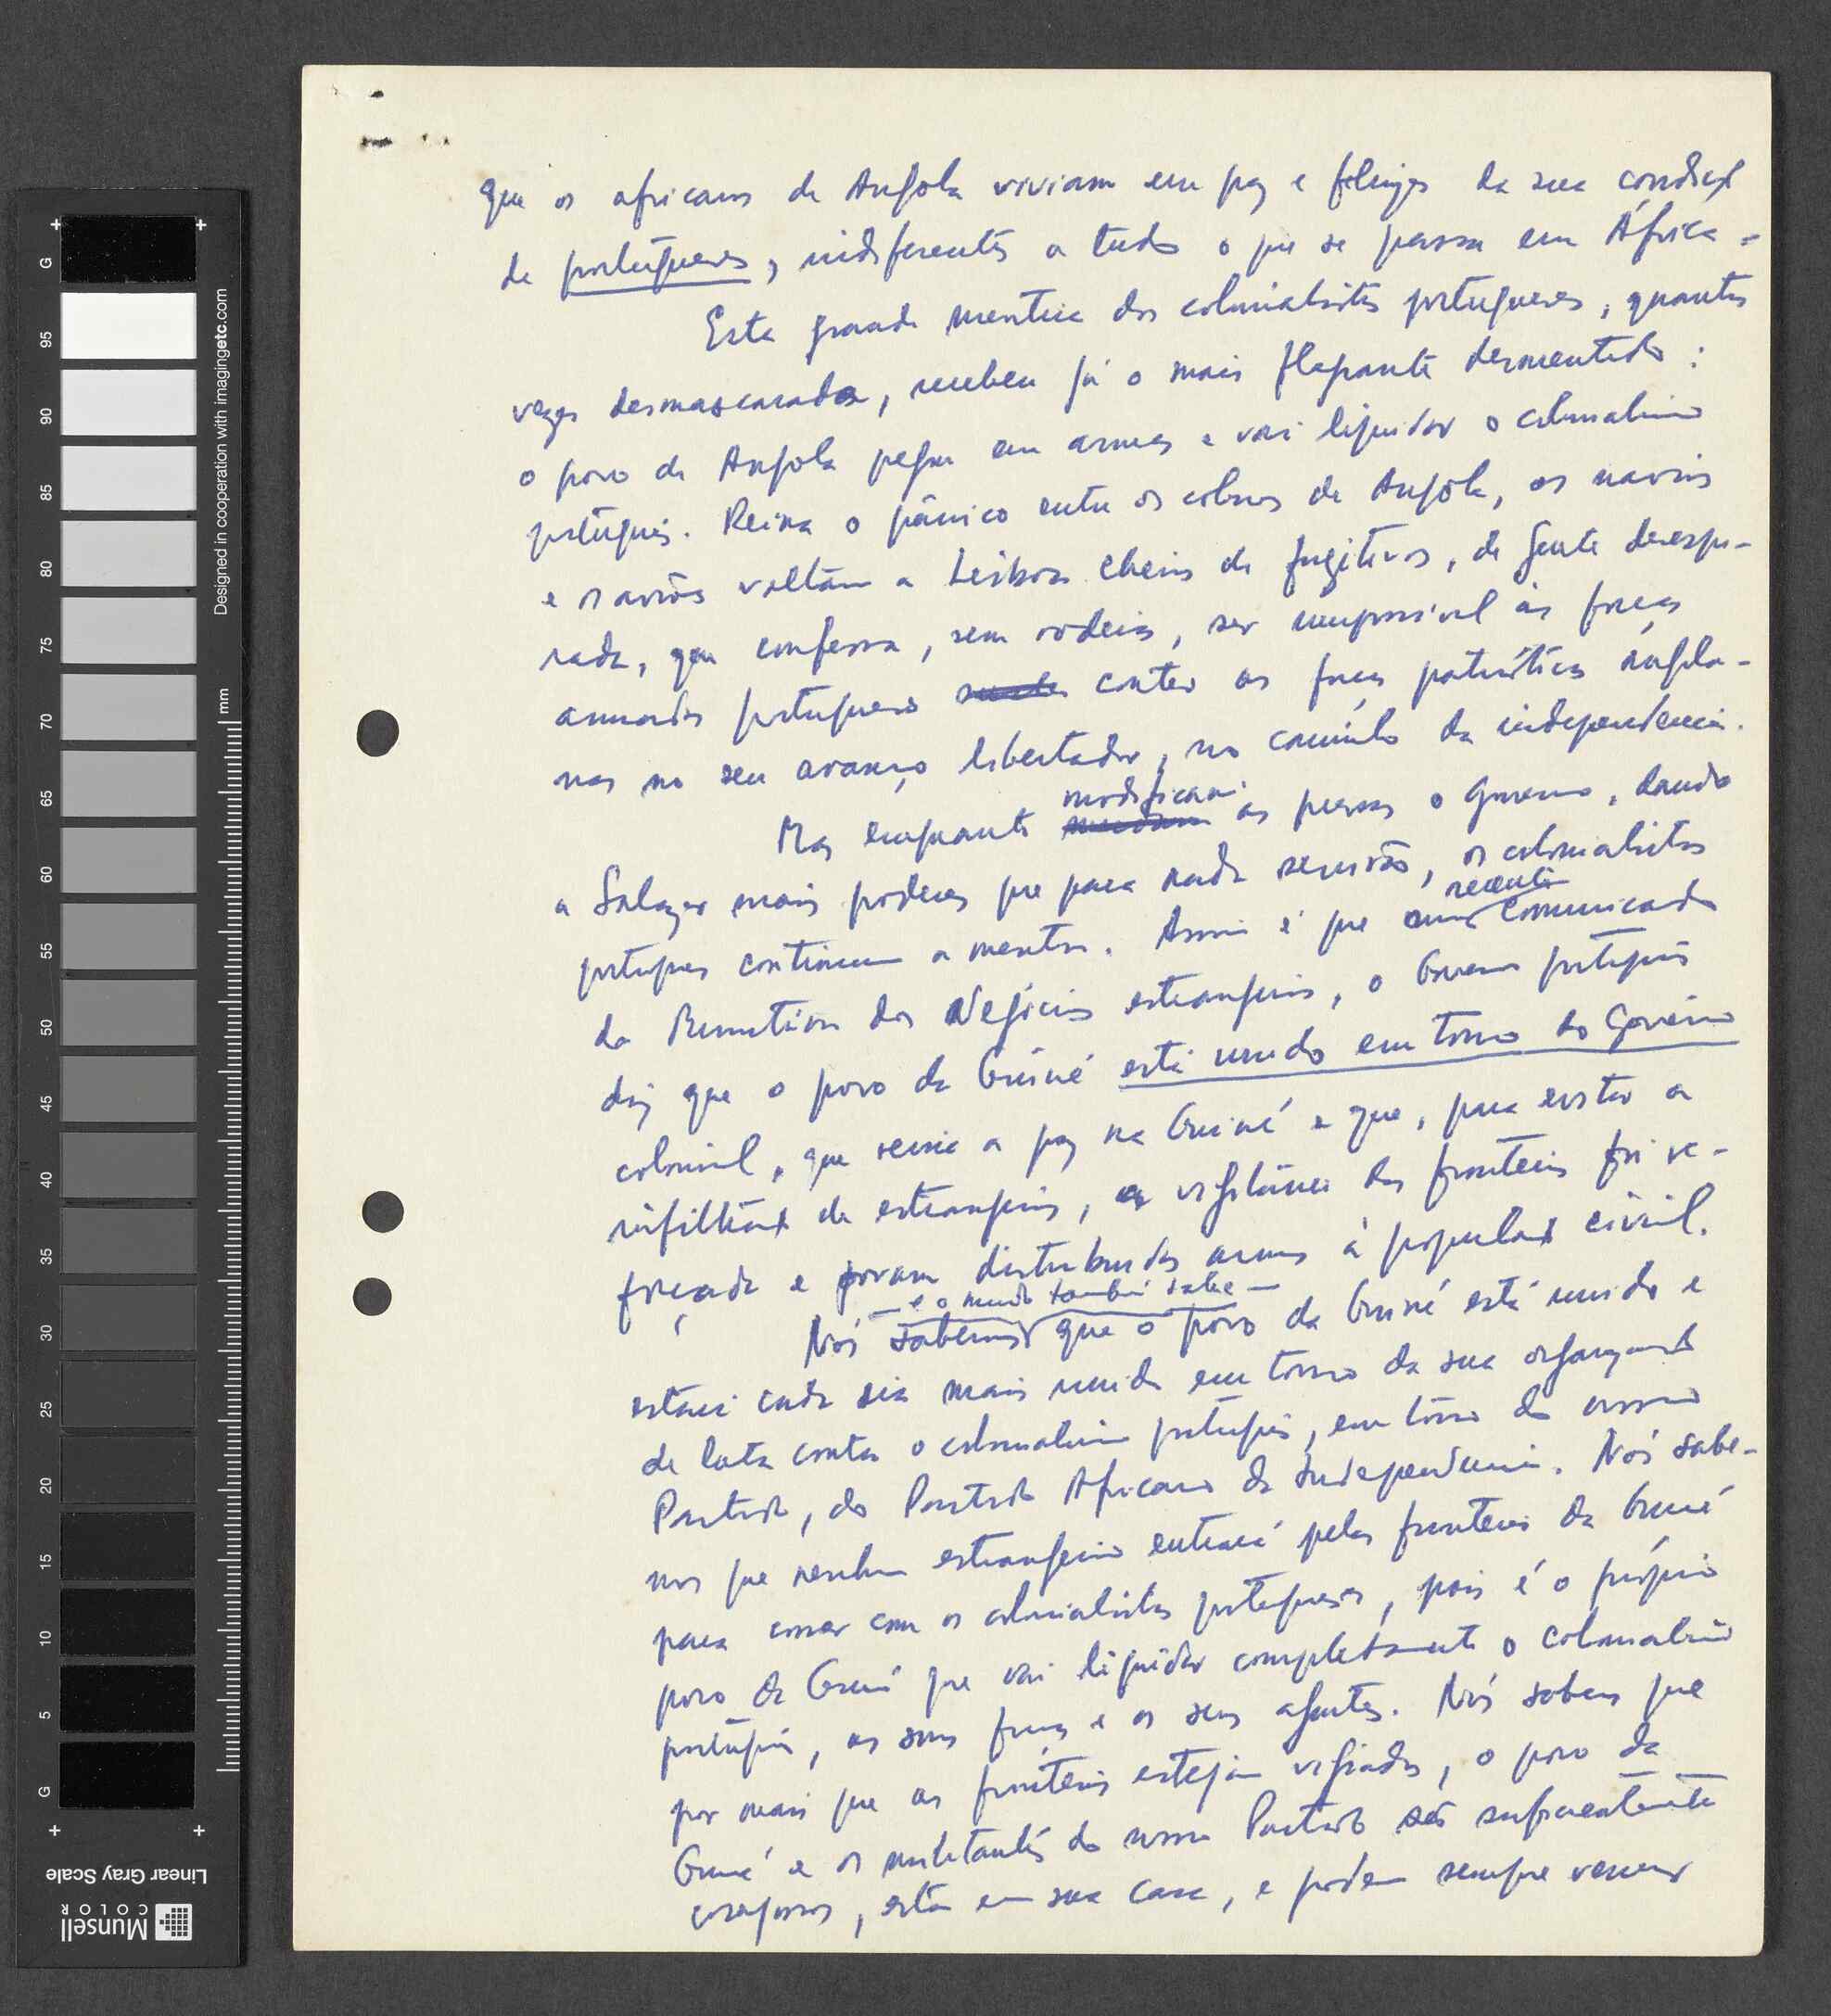 que os africanos de Angola viviam em paz e felizes da sua condição
de portugueses, indiferentes a tudo o que se passa em África.
Esta grande mentira dos colonialistas portugueses, quantas
vezes desmascarada, recebeu já o mais flagrante desmentido:
o povo de Angola pegou em armas e vai liquidar o colonialismo
português. Reina o pânico entre os colonos de Angola, os navios
e os aviões voltam a Lisboa cheios de fugitivos, de gente desespe-
rada, que confessa, sem rodeios, ser impossível às forças
armadas portuguesas conter as forças patrióticas angola-
nas no seu avanço libertador, no caminho da independência.
modificam
Mas enquanto as pessoas o Governo, dando
a Salazar mais poderes que para nada servirão, os colonialistas
recente
portugueses continuam a mentir. Assim é que num comunicado
do Ministério dos Negócios estrangeiros, o Governo português
diz que o povo da Guiné está unido em torno do Governo
colonial, que reina a paz na Guiné e que, para evitar a
infiltração de estrangeiros, a vigilância das fronteiras foi re-
forçada e foram distribuidas armas à população civil.
— e o mundo também sabe —
Nós sabemos que o povo da Guiné está unido e
estará cada dia mais unido em torno da sua organização
de luta contra o colonialismo português, em torno do nosso
Partido, do Partido Africano da Independência. Nós sabe-
mos que nenhum estrangeiro entrará pelas fronteiras da Guiné
para correr com os colonialistas portugueses, pois é o próprio
povo da Guiné que vai liquidar completamente o colonialismo
português, as suas forças e os seus agentes. Nós sabemos que
por mais que as fronteiras estejam vigiadas, o povo da
Guiné e os militantes do nosso Partido são suficientemente
corajosos, estão em sua casa, e podem sempre vencer